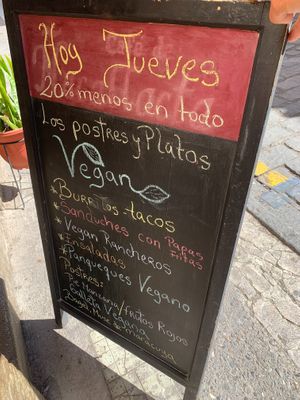 Hoy Jueves
20% menos en todo
Los postres y Platos
Vegan
* Burritos - tacos
* Sanduches con Papas
Fritas
* Vegan Rancheros
* Ensaladas
* Panqueques Vegano
Postres:
de Manzana/frutos Rojos
Galleta Vegana
maracuya